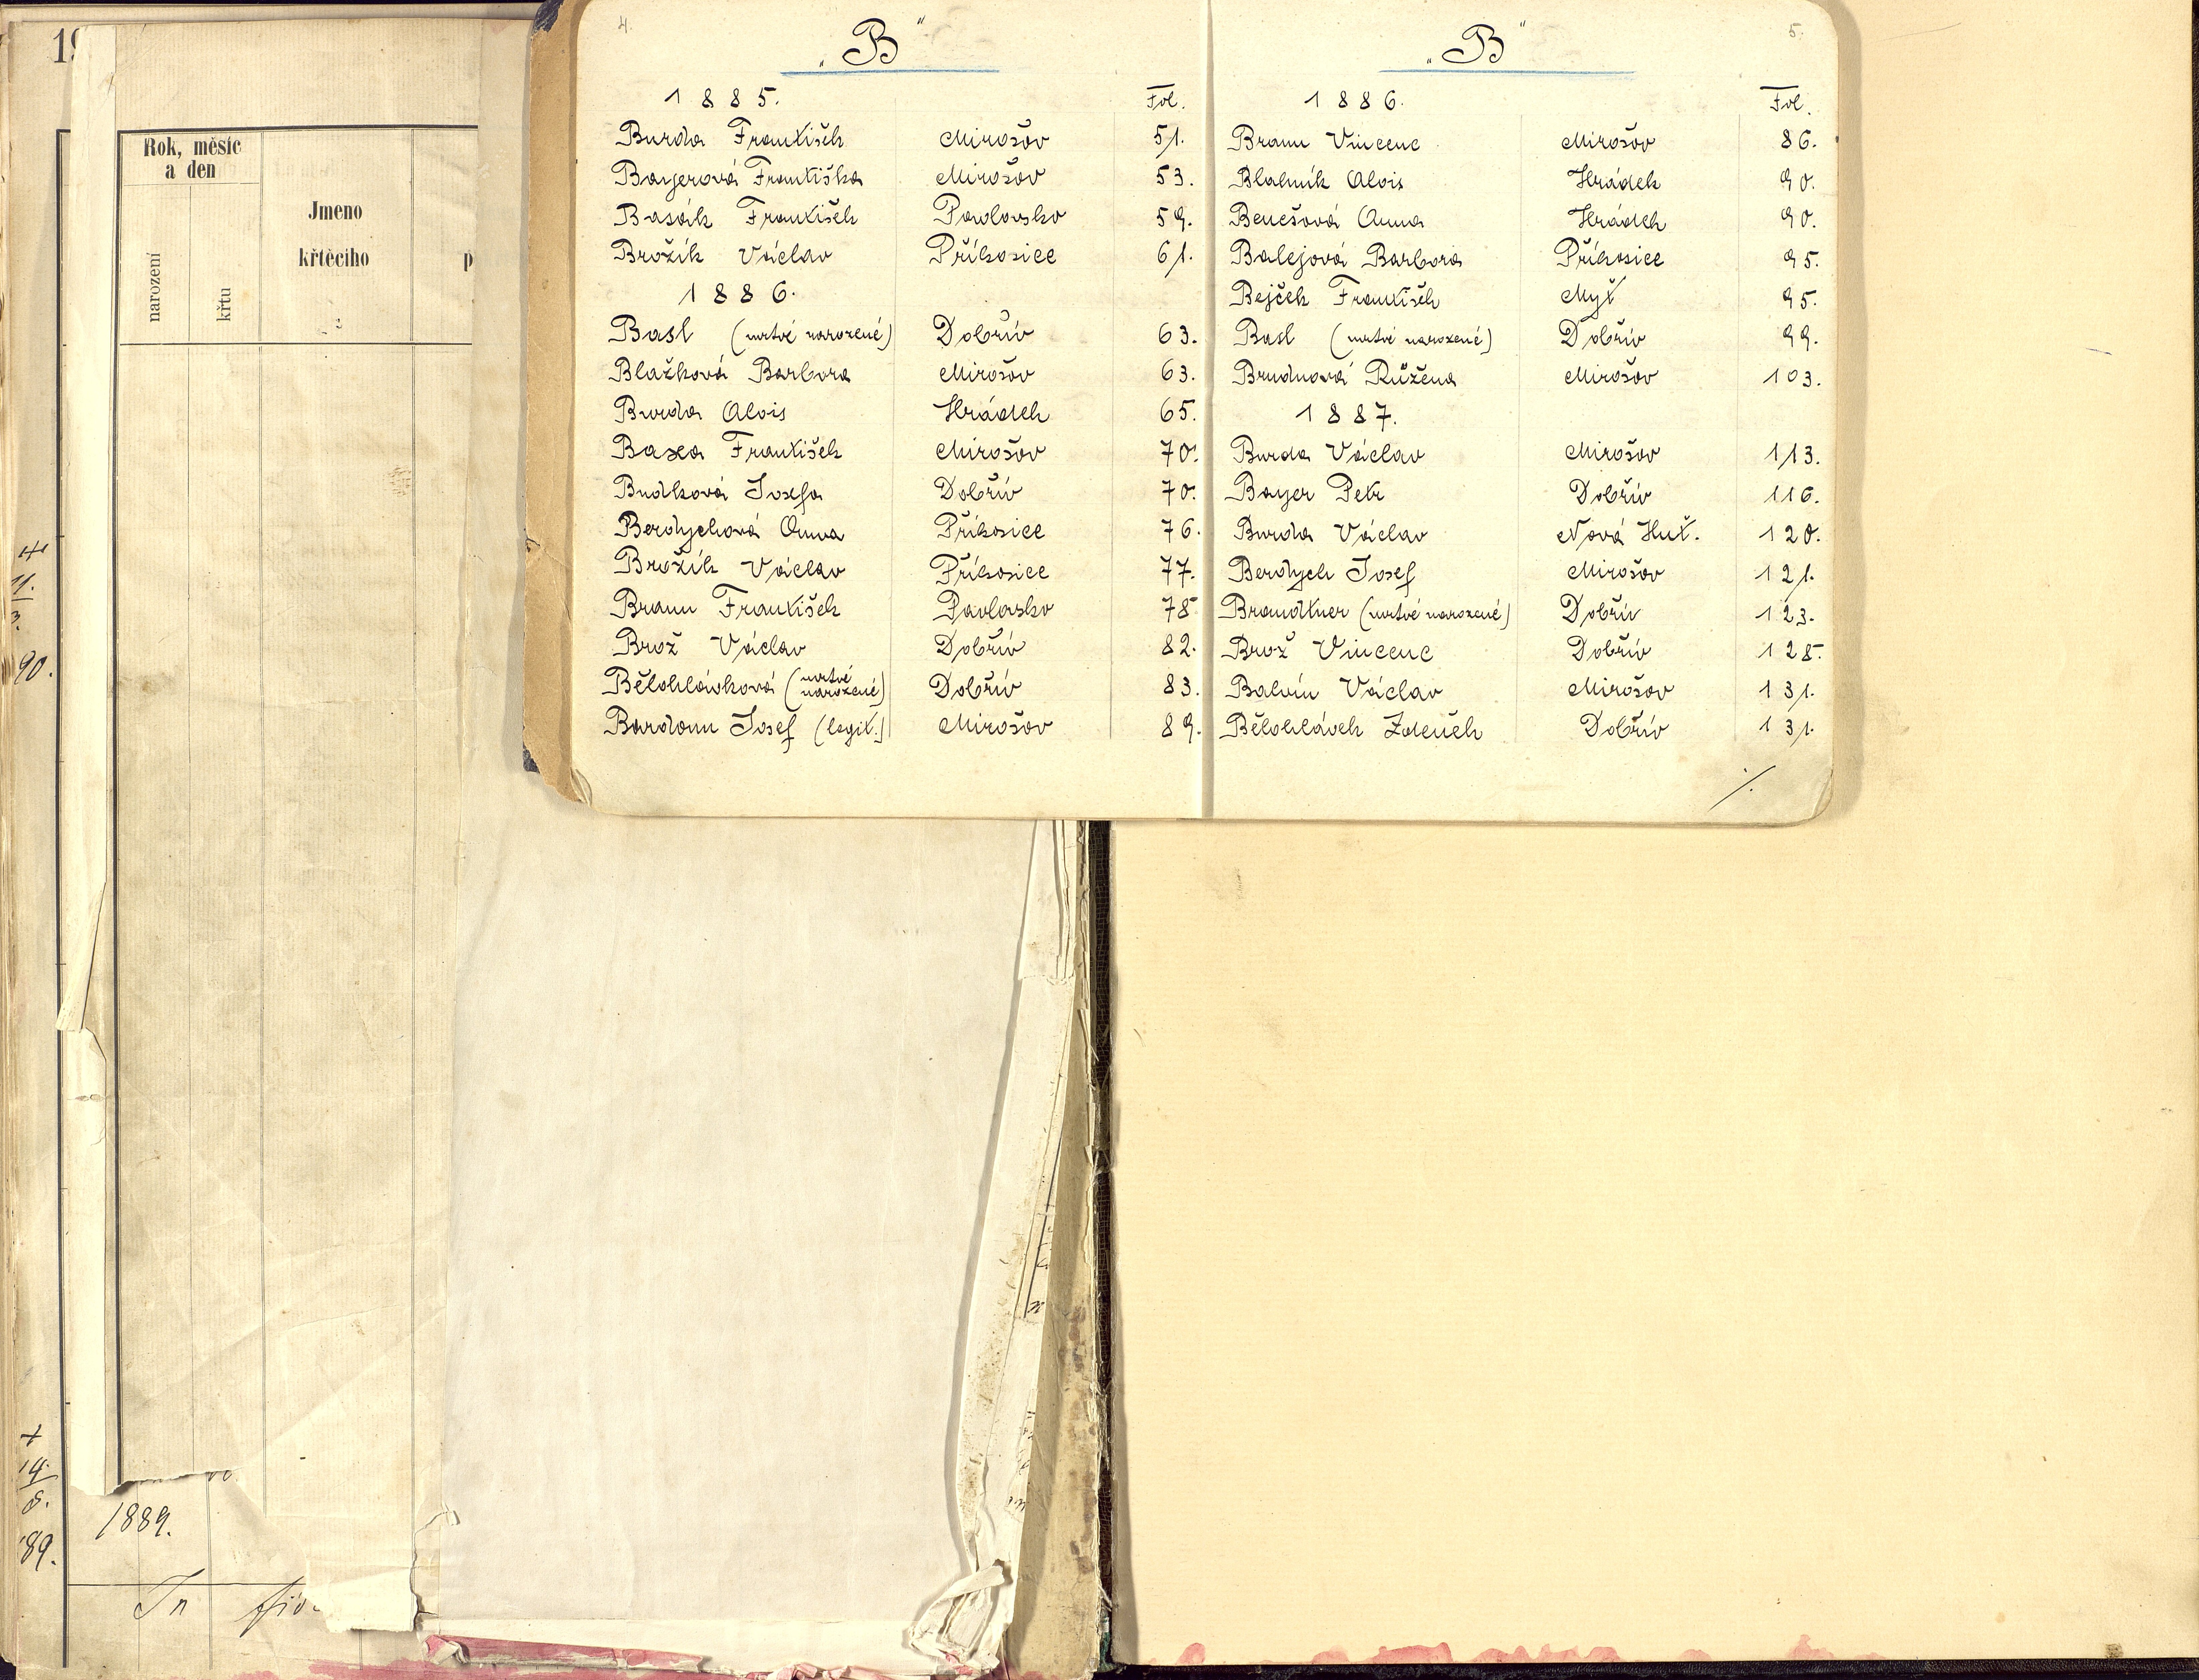 4.
„B“
1885. Fol.
Burda František Mirošov 51.
Bayerová Františka Mirošov 53.
Basák František Pavlovsko 59.
Brožík Václav Příkosice 61.
1886.
Basl (mrtvé narozené) Dobřív 63.
Blažková Barbora Mirošov 63.
Burda Alois Hrádek 65.
Baxa František Mirošov 70.
Budková Josefa Dobřív 70.
Berdychová Anna Příkosice 76.
Brožík Václav Příkosice 77.
Braun František Pavlovsko 78
Brož Václav Dobřív 82.
Bělohlávková (mrtvé narozené) Dobřív 83.
Bardonn Josef (legit.) Mirošov 89.
5.
„B“
1886. Fol.
Braun Vincenc Mirošov 86.
Blahník Alois Hrádek 90.
Benešová Anna Hrádek 90.
Balejová Barbora Příkosice 95.
Bejček František Myť 95.
Basl (mrtvé narozené) Dobřív 99.
Brudnová Růžena Mirošov 103.
1887.
Burda Václav Mirošov 113.
Bayer Petr Dobřív 116.
Burda Václav Nová Huť. 120.
Berdych Josef Mirošov 121.
Brandtner (mrtvé narozené) Dobřív 123.
Brož Vincenc Dobřív 128.
Balvín Václav Mirošov 131.
Bělohlávek Zdeněk Dobřív 131.
./.
19
Rok, měsíc
a den
narození
křtu
Jmeno
křtěcího
2
p
11.
3.
90.
+
14.
8.
89.
1889.
In